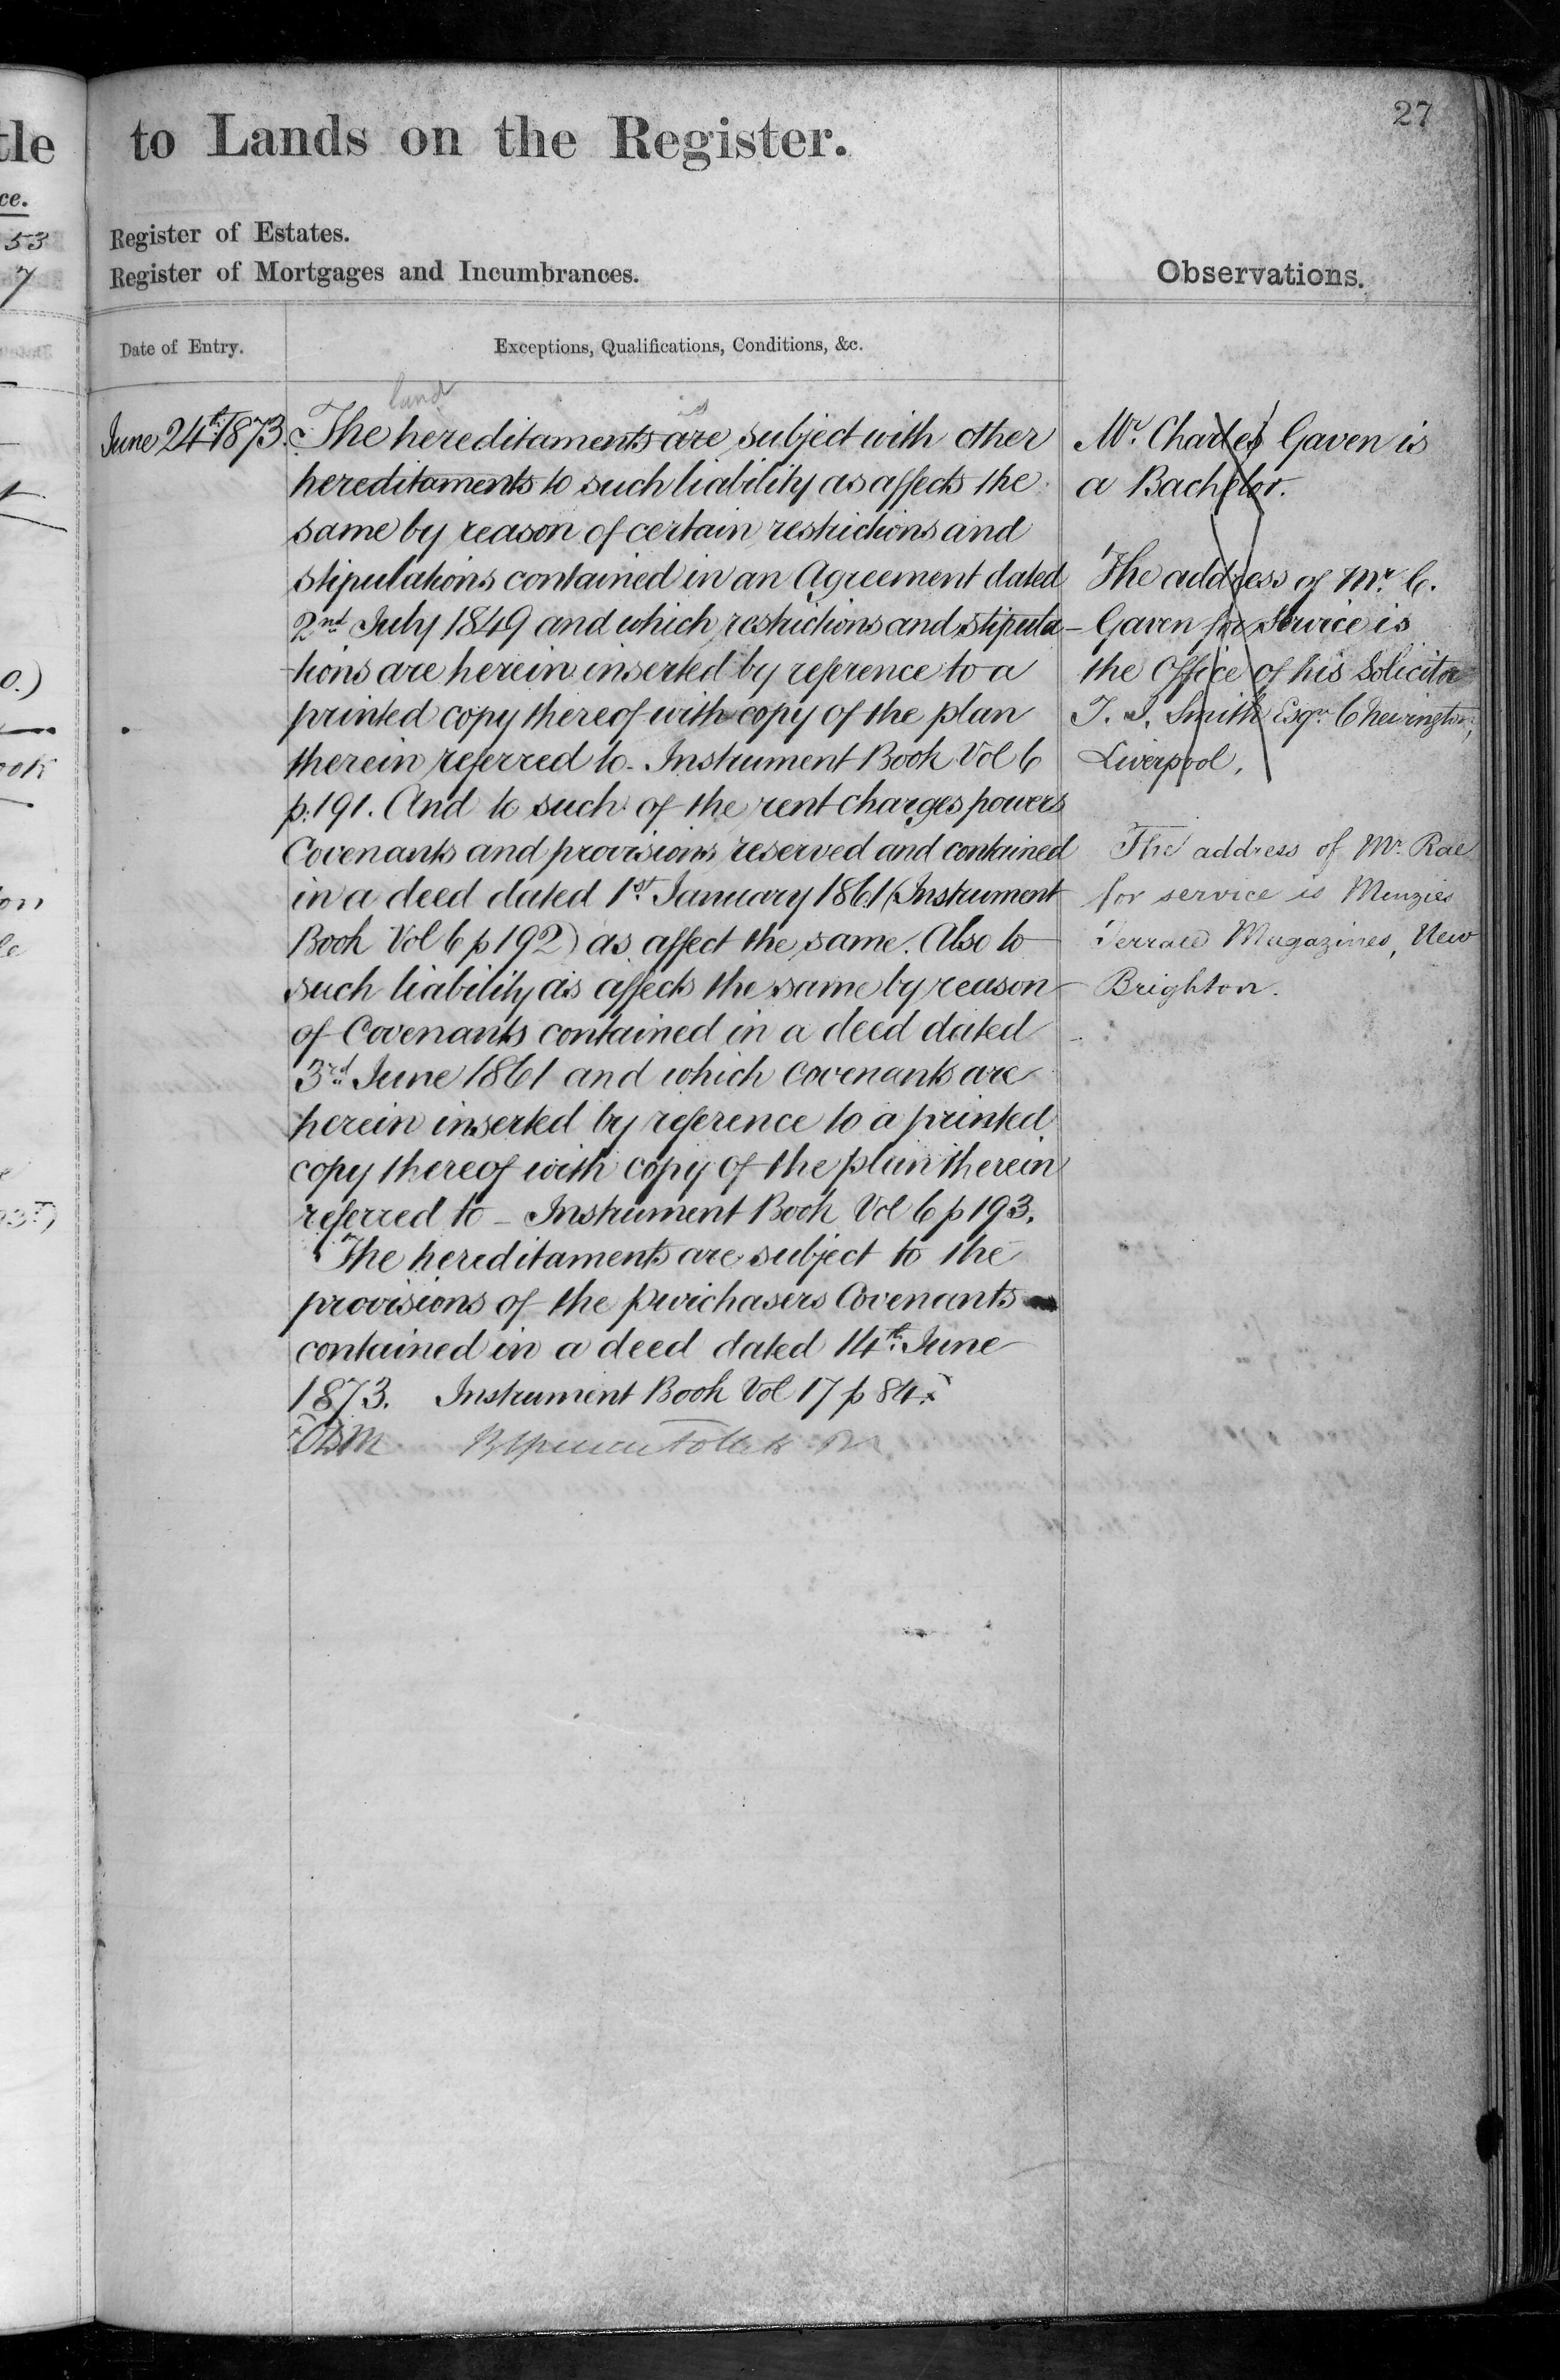 27
to Lands on the Register.
Register of Estates.
Register of Mortgages and Incumbrances.
Observations.
Date of Entry.
Exceptions, Qualifications, Conditions, &c.
land is
June 24th 1873. The hereditaments are subject with other
hereditaments to such liability as affects the
same by reason of certain restrictions and
stipulations contained in an Agreement dated
2nd July 1849 and which restrictions and stipula-
tions are herein inserted by reference to a
printed copy thereof with copy of the plan
therein referred to - Instrument Book Vol 6
p. 191. And to such of the rent charges powers
Covenants and provisions reserved and contained
in a deed dated 1st January 1861 (Instrument
Book Vol 6 p 192) as affect the same. Also to
such liability as affects the same by reason
of Covenants contained in a deed dated
3rd June 1861 and which covenants are
herein inserted by reference to a printed
copy thereof with copy of the plan therein
referred to - Instrument Book Vol 6 p 193.
The hereditaments are subject to the
provisions of the purchasers Covenants
contained in a deed dated 14th June
1873. Instrument Book Vol 17 p 84.
Mr. Charles Gaven is
a Bachelor.
The address of Mr. C.
Gaven for Service is
the Office of his Solicitor
T. J. Smith Esqr. Chevington,
Liverpool.
The address of Mr. Rae
for service is Menzies
Terrace Magazines, New
Brighton.